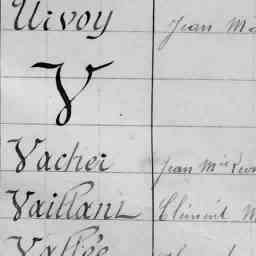 Urvoy Jean M
V
Vacher Jean Mie
Vaillant Clément M
Vallée